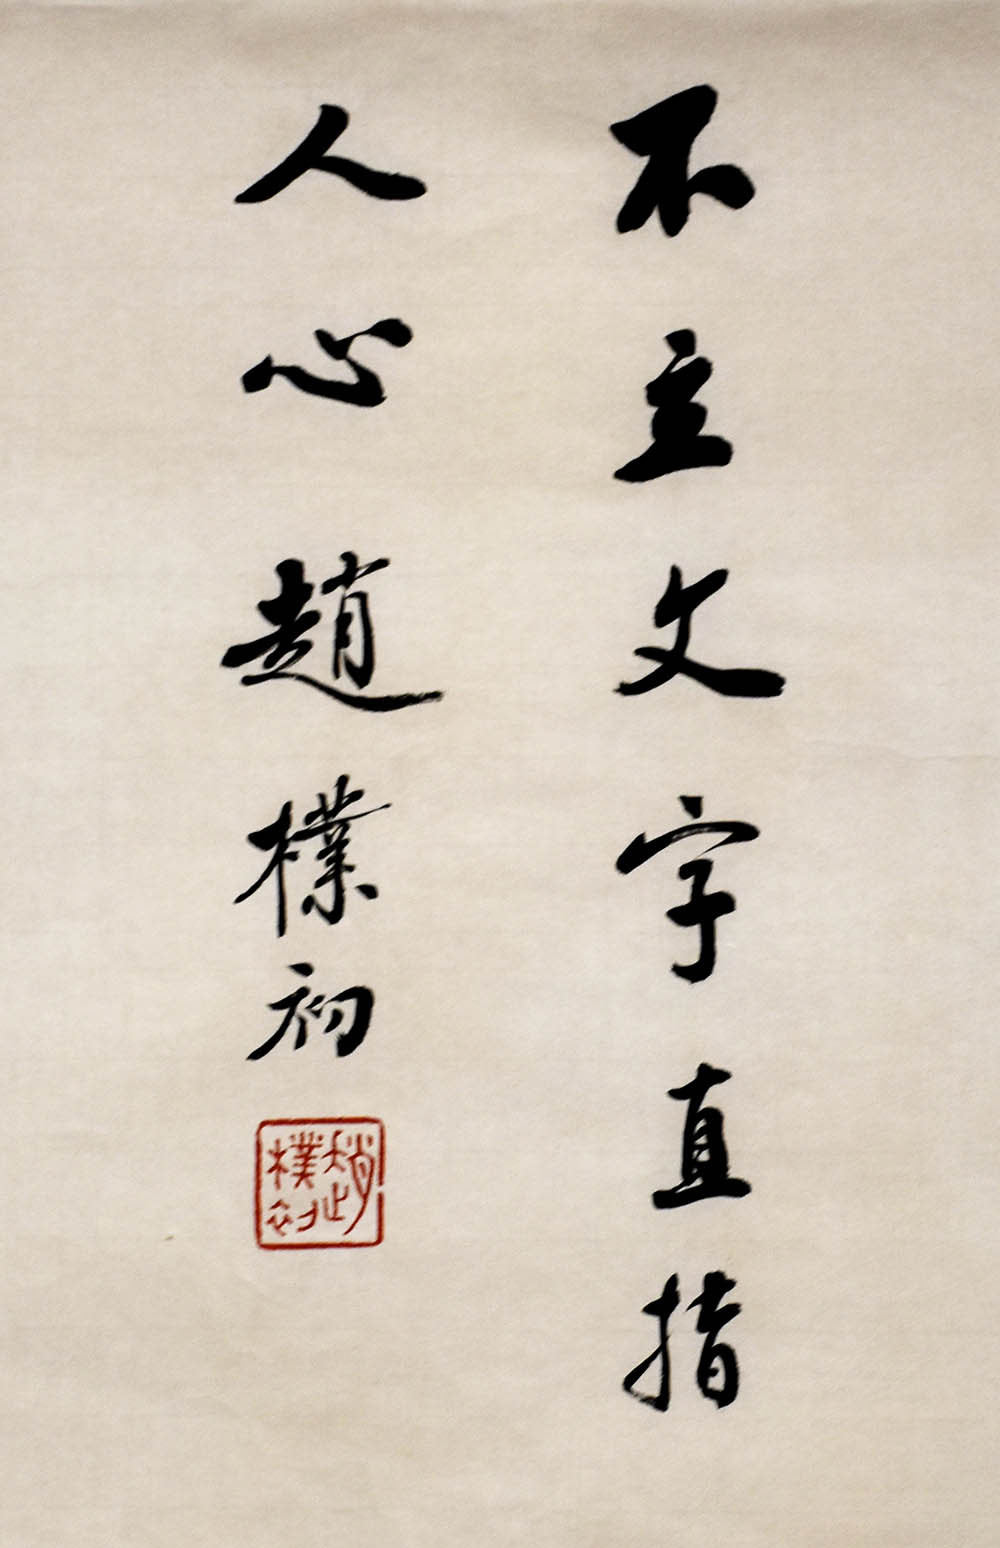 不立文字直指
人心趙樸初
趙樸初